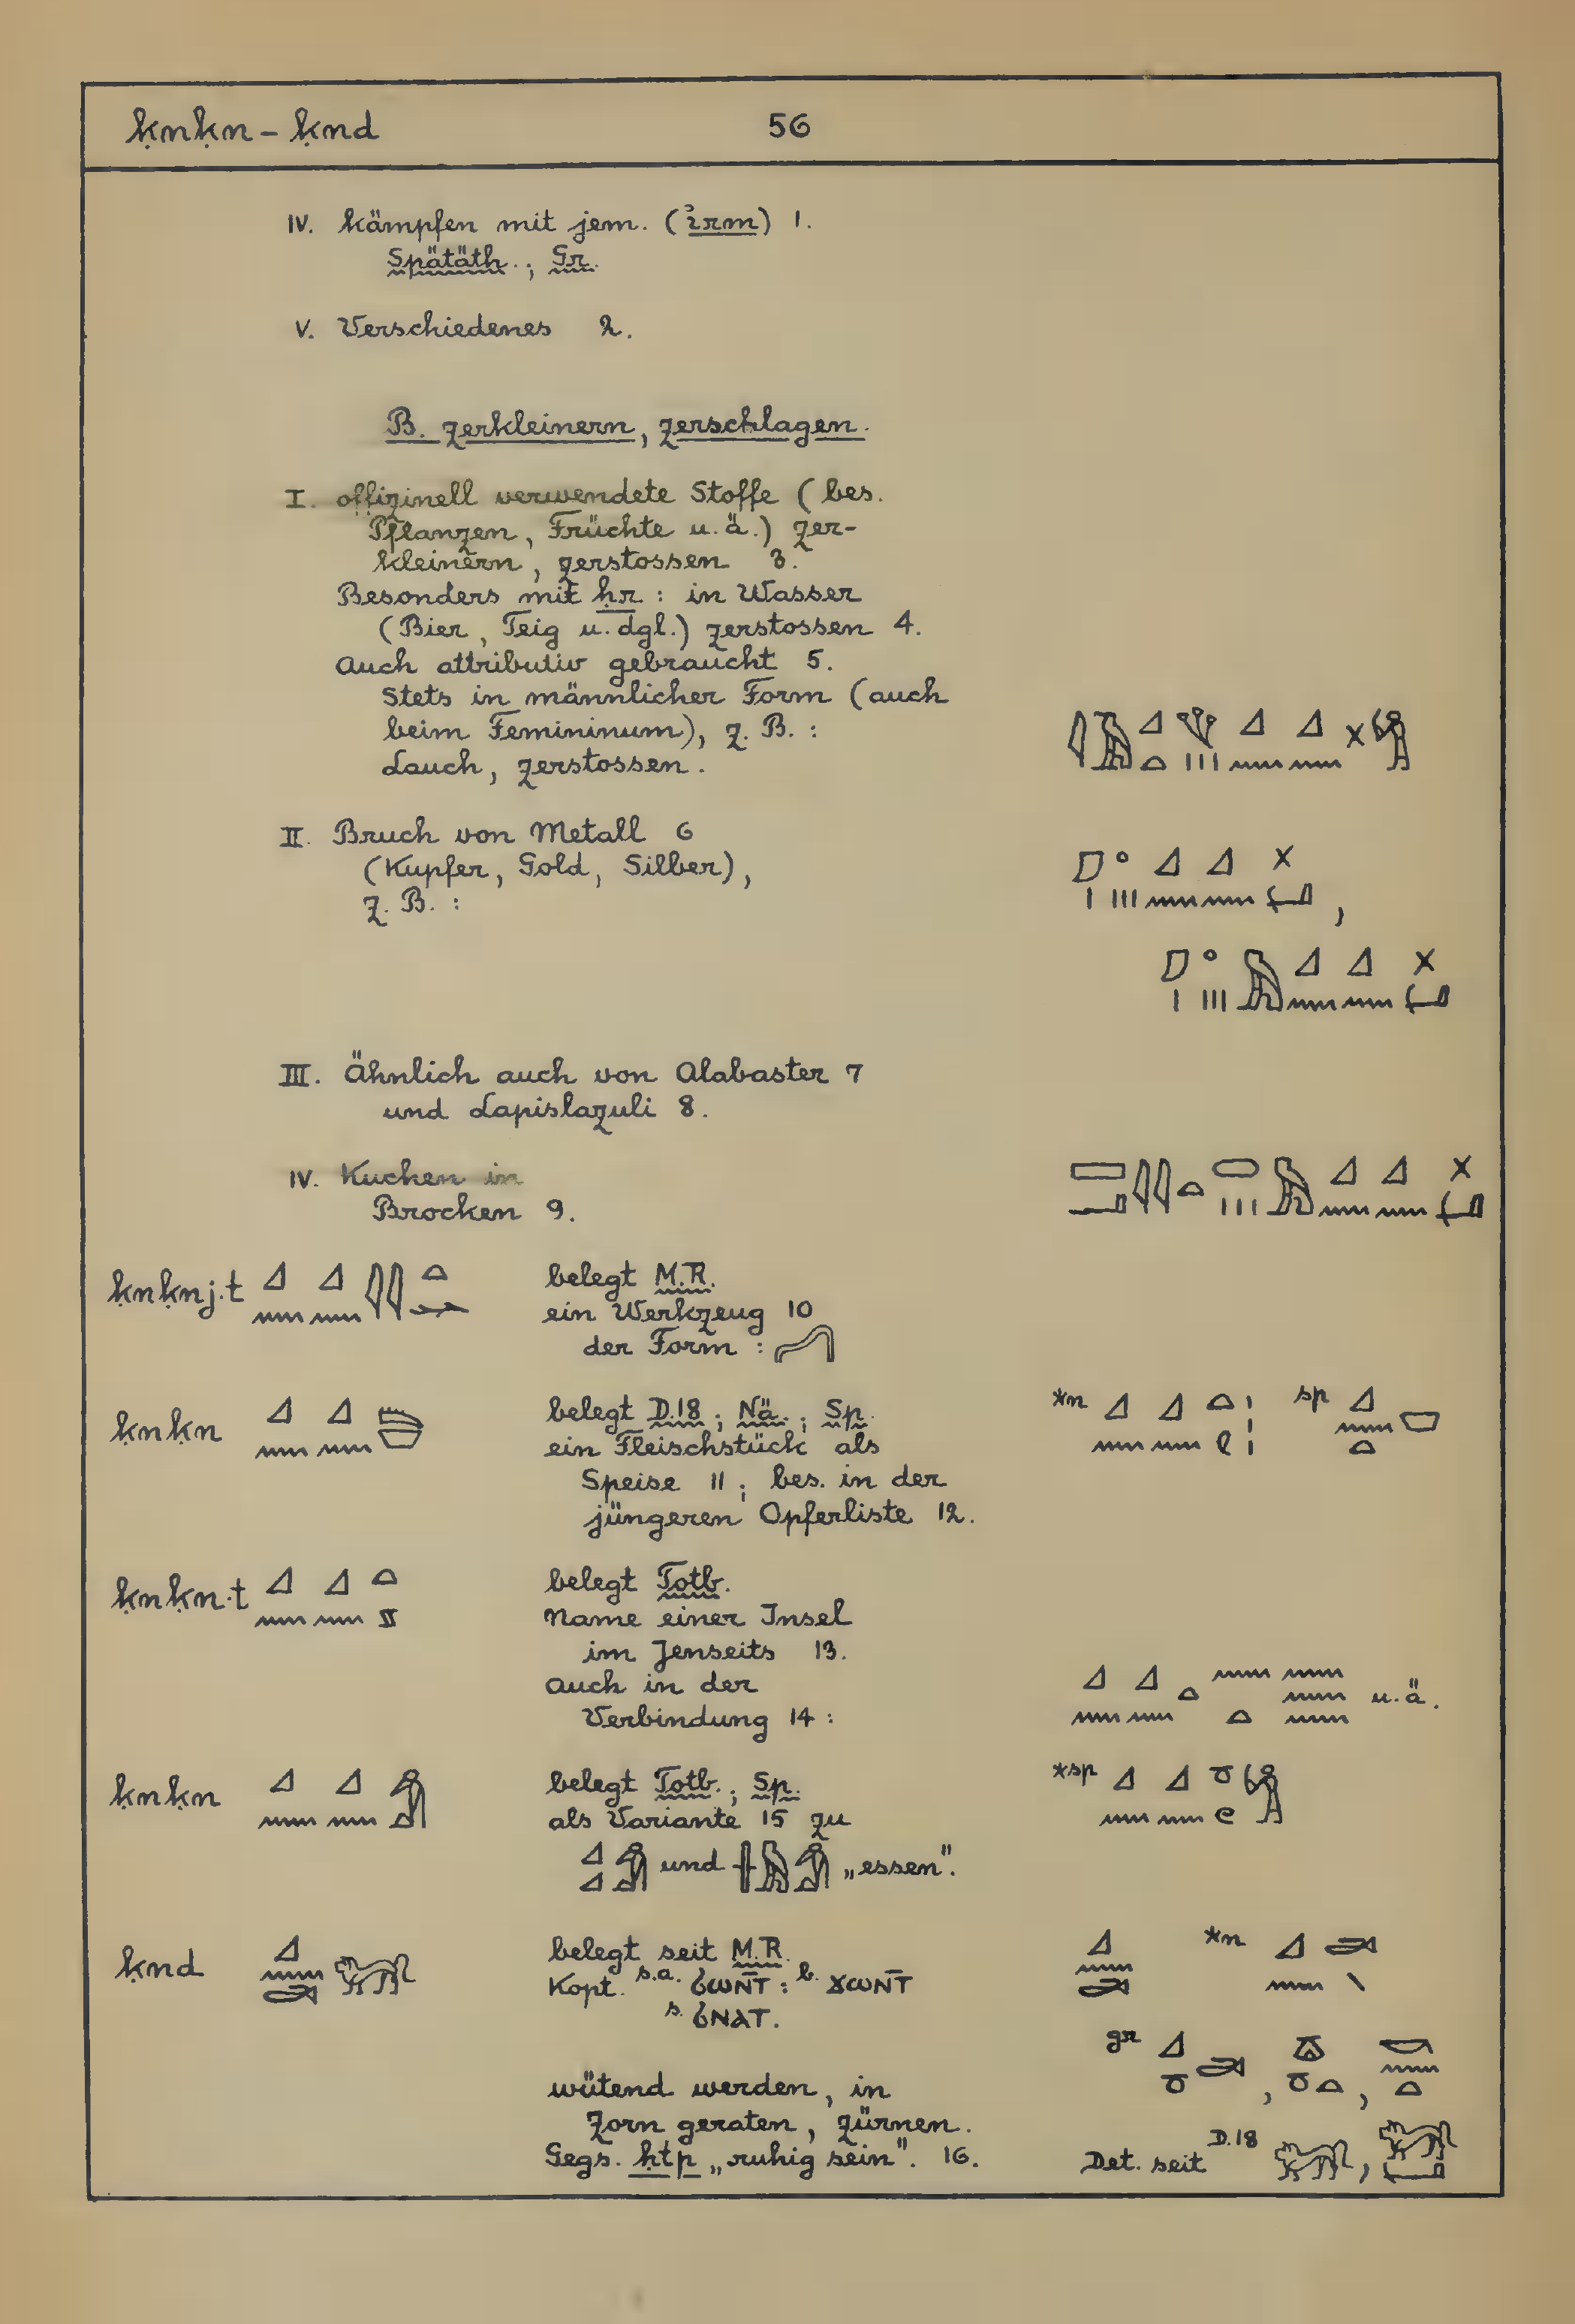 ḳnḳn – ḳnd 56
IV. kämpfen mit jem. (ỉrm) 1.
Spätäth.; Gr.
V. Verschiedenes 2.
B. zerkleinern, zerschlagen.
I. offizinell verwendete Stoffe (bes.
Pflanzen, Früchte u.ä.) zer-
kleinern, zerstossen 3.
Besonders mit ḥr: in Wasser
(Bier, Teig u. dgl.) zerstossen 4.
Auch attributiv gebraucht 5.
Stets in männlicher Form (auch
beim Femininum), z. B.:
Lauch, zerstossen.
II. Bruch von Metall 6
(Kupfer, Gold, Silber),
z. B.:
III. Ähnlich auch von Alabaster 7
und Lapislazuli 8.
IV. Kuchen in
Brocken 9.
ḳnḳnj.t belegt M.R.
ein Werkzeug 10
der Form:
ḳnḳn belegt D.18; Nä.; Sp. *n sp
ein Fleischstück als
Speise 11; bes. in der
jüngeren Opferliste 12.
ḳnḳn.t belegt Totb.
Name einer Insel
im Jenseits 13.
Auch in der
Verbindung 14: u.ä.
ḳnḳn belegt Totb.; Sp. *sp
als Variante 15 zu
und „essen".
ḳnd belegt seit M.R. *n
Kopt. s.a. ϭⲱⲛ̄ⲧ : b. ϫⲱⲛ̄ⲧ
s. ϭⲛⲁⲧ.
gr
wütend werden, in
Zorn geraten, zürnen.
Gegs. ḥtp „ruhig sein". 16. Det. seit D.18